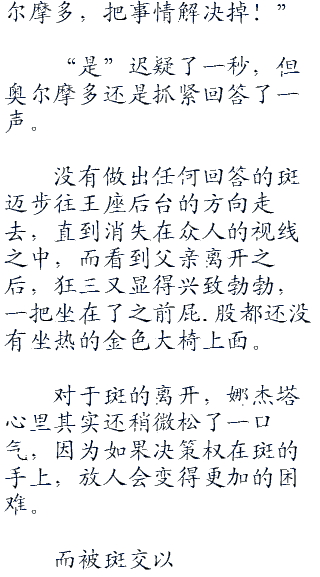 尔摩多，把事情解决掉！”
“是”迟疑了一秒，但
奥尔摩多还是抓紧回答了一
声。
没有做出任何回答的斑
迈步往王座后台的方向走
去，直到消失在众人的视线
之中，而看到父亲离开之
后，狂三又显得兴致勃勃，
一把坐在了之前屁.股都还没
有坐热的金色大椅上面。
对于斑的离开，娜杰塔
心里其实还稍微松了一口
气，因为如果决策权在斑的
手上，放人会变得更加的困
难。
而被斑交以